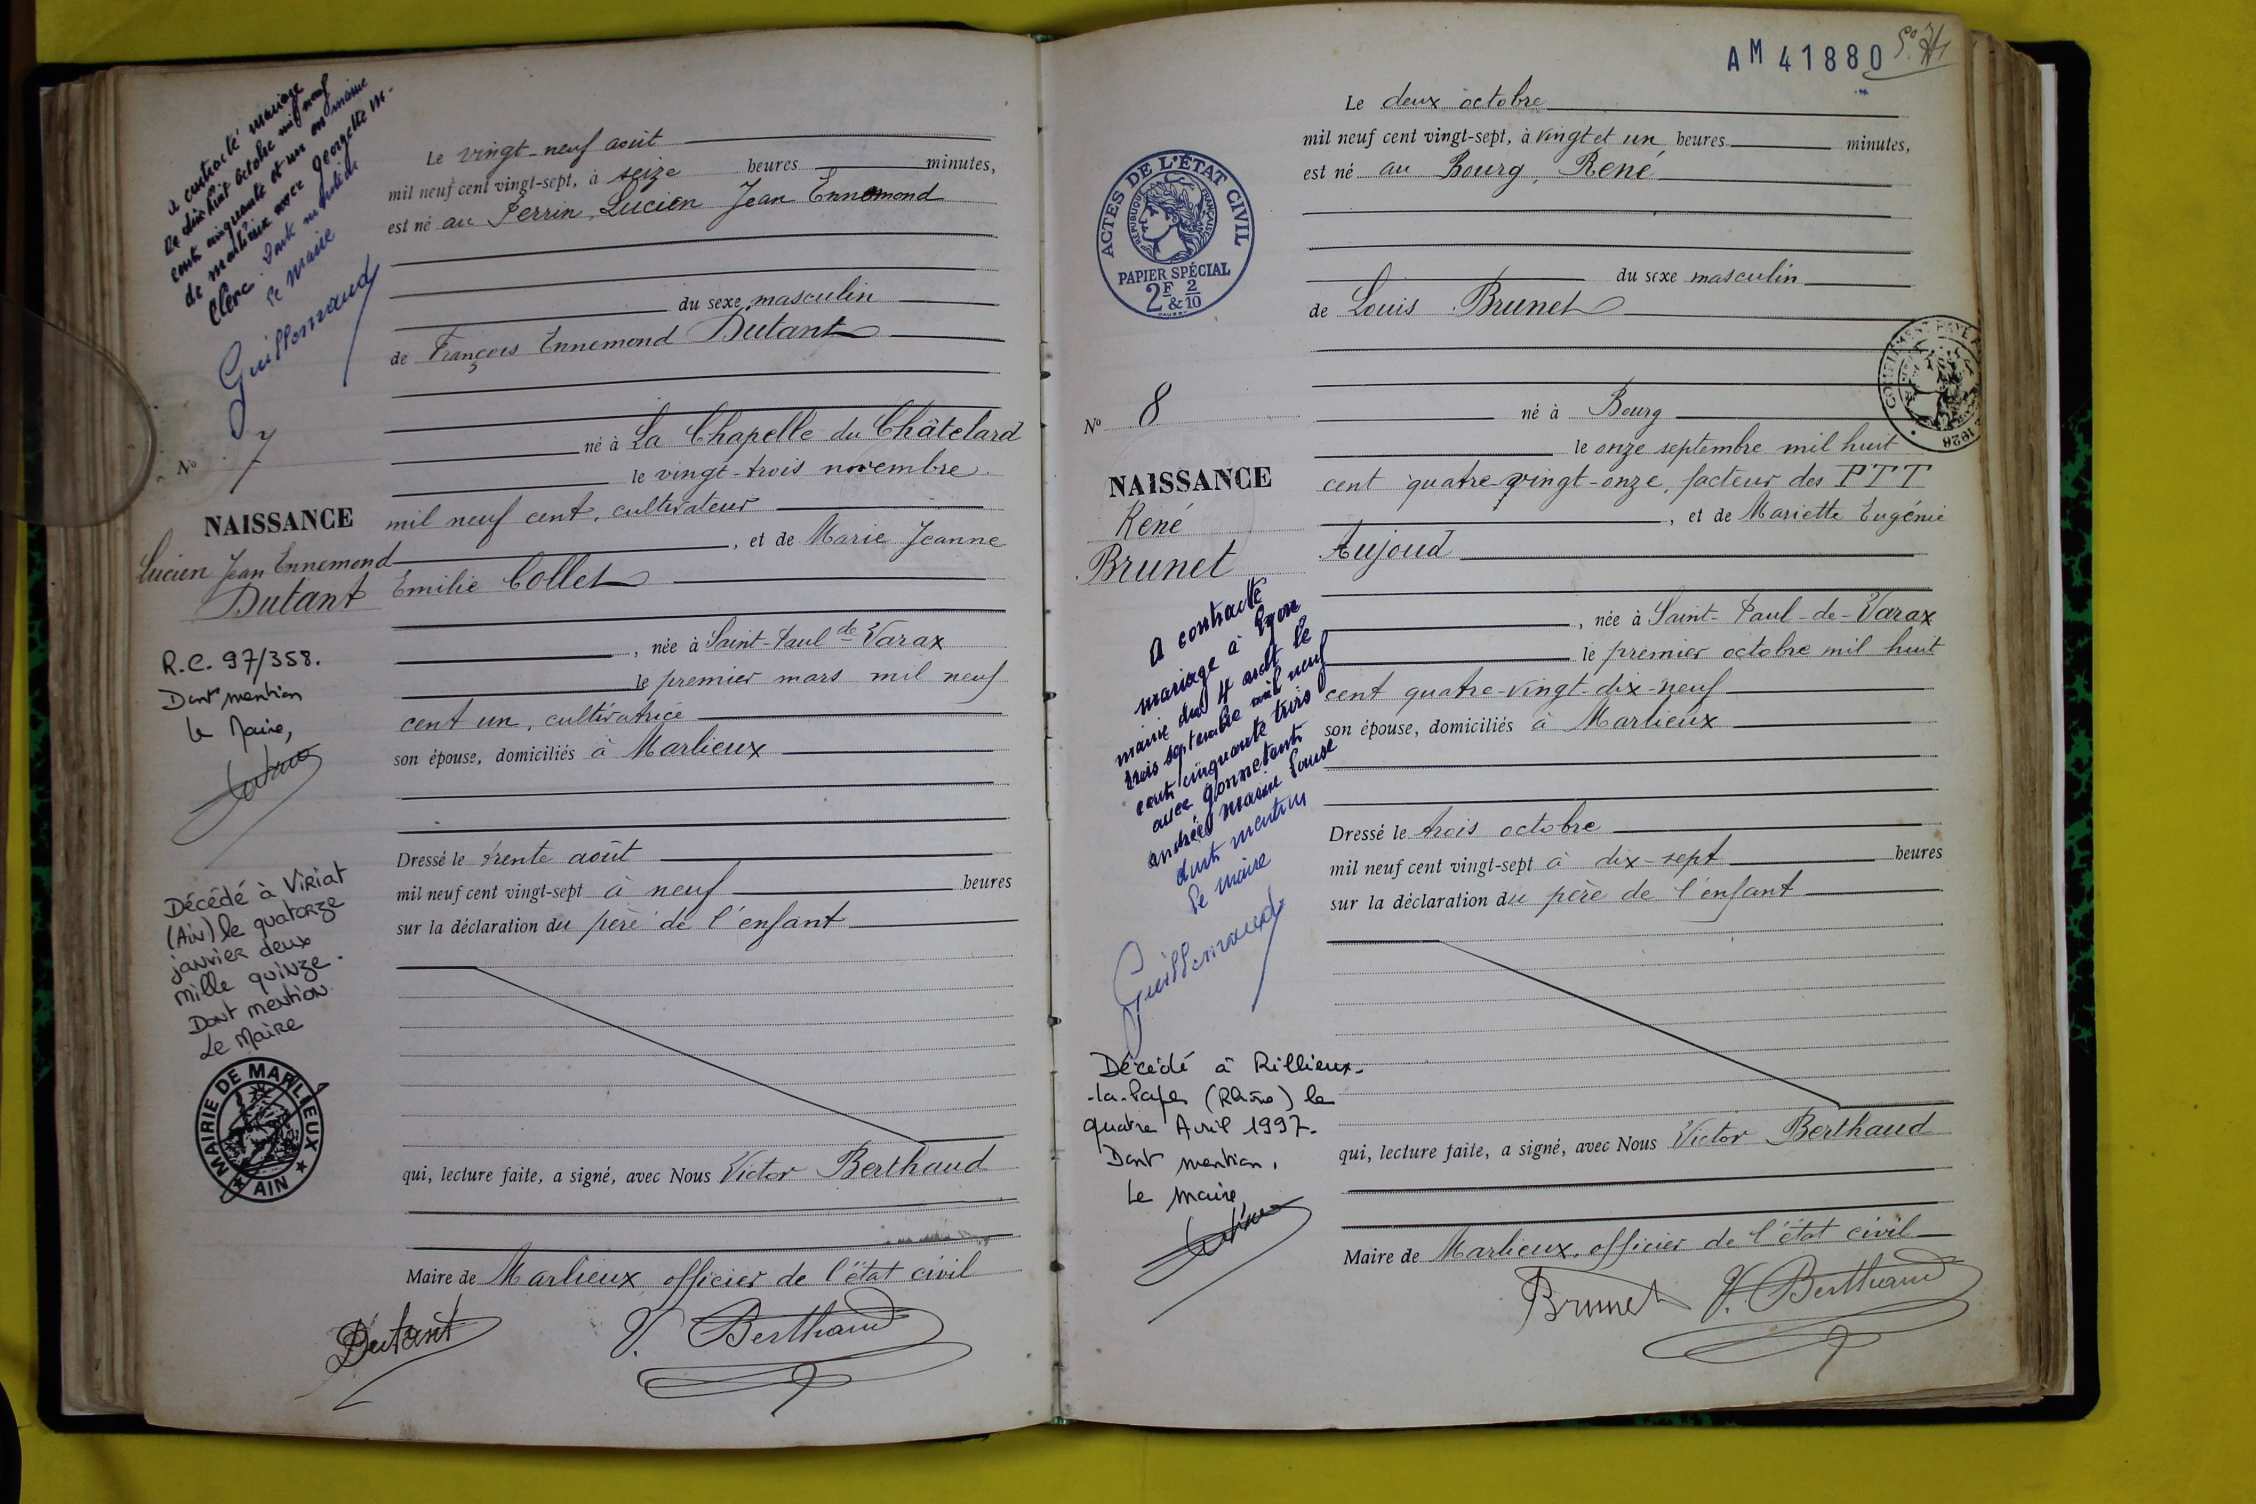 a contracté mariage
le dix huit octobre mil neuf
cent cinquante et un en mairie
de marlieux avec Georgette M.
Clerc. Dont mention
le maire
Guillomaud
N° 7
NAISSANCE
Lucien Jean Ennemond
Dutant
R.C. 97/358.
Dont mention
le Maire,
Décédé à Viriat
(Ain) le quatorze
janvier deux
mille quinze.
Dont mention
Le Maire
MAIRIE DE MARLIEUX
★ AIN ★
Le vingt-neuf août
mil neuf cent vingt-sept, à seize heures minutes,
est né au Perrin, Lucien Jean Ennemond
du sexe masculin
de François Ennemond Dutant
né à La Chapelle du Châtelard
le vingt-trois novembre
mil neuf cent, cultivateur
, et de Marie Jeanne
Emilie Collet
, née à Saint-Paul de Varax
le premier mars mil neuf
cent un, cultivatrice
son épouse, domiciliés à Marlieux
Dressé le trente août
mil neuf cent vingt-sept à neuf heures
sur la déclaration du père de l'enfant
qui, lecture faite, a signé, avec Nous Victor Berthaud
Maire de Marlieux, officier de l'état civil
Dutant V. Berthaud
AM 41880
ACTES DE L'ÉTAT CIVIL
RÉPUBLIQUE FRANÇAISE
PAPIER SPÉCIAL
2F & 2/10
N° 8
NAISSANCE
René
Brunet
A contracté
mariage à Lyon
mairie du 4 ardt le
trois septembre mil neuf
cent cinquante trois
avec Gonnetant
andrée marie Louise
dont mention
le maire
Guillomaud
Décédé à Rillieux-
-la-Pape (Rhône) le
quatre Avril 1997.
Dont mention,
Le Maire
Le deux octobre
mil neuf cent vingt-sept, à vingt et un heures minutes,
est né au Bourg, René
du sexe masculin
de Louis Brunet
né à Bourg
le onze septembre mil huit
cent quatre-vingt-onze, facteur des PTT
, et de Mariette Eugénie
Aujoud
, née à Saint-Paul-de-Varax
le premier octobre mil huit
cent quatre-vingt-dix-neuf
son épouse, domiciliés à Marlieux
Dressé le trois octobre
mil neuf cent vingt-sept à dix-sept heures
sur la déclaration du père de l'enfant
qui, lecture faite, a signé, avec Nous Victor Berthaud
Maire de Marlieux, officier de l'état civil
Brunet V. Berthaud